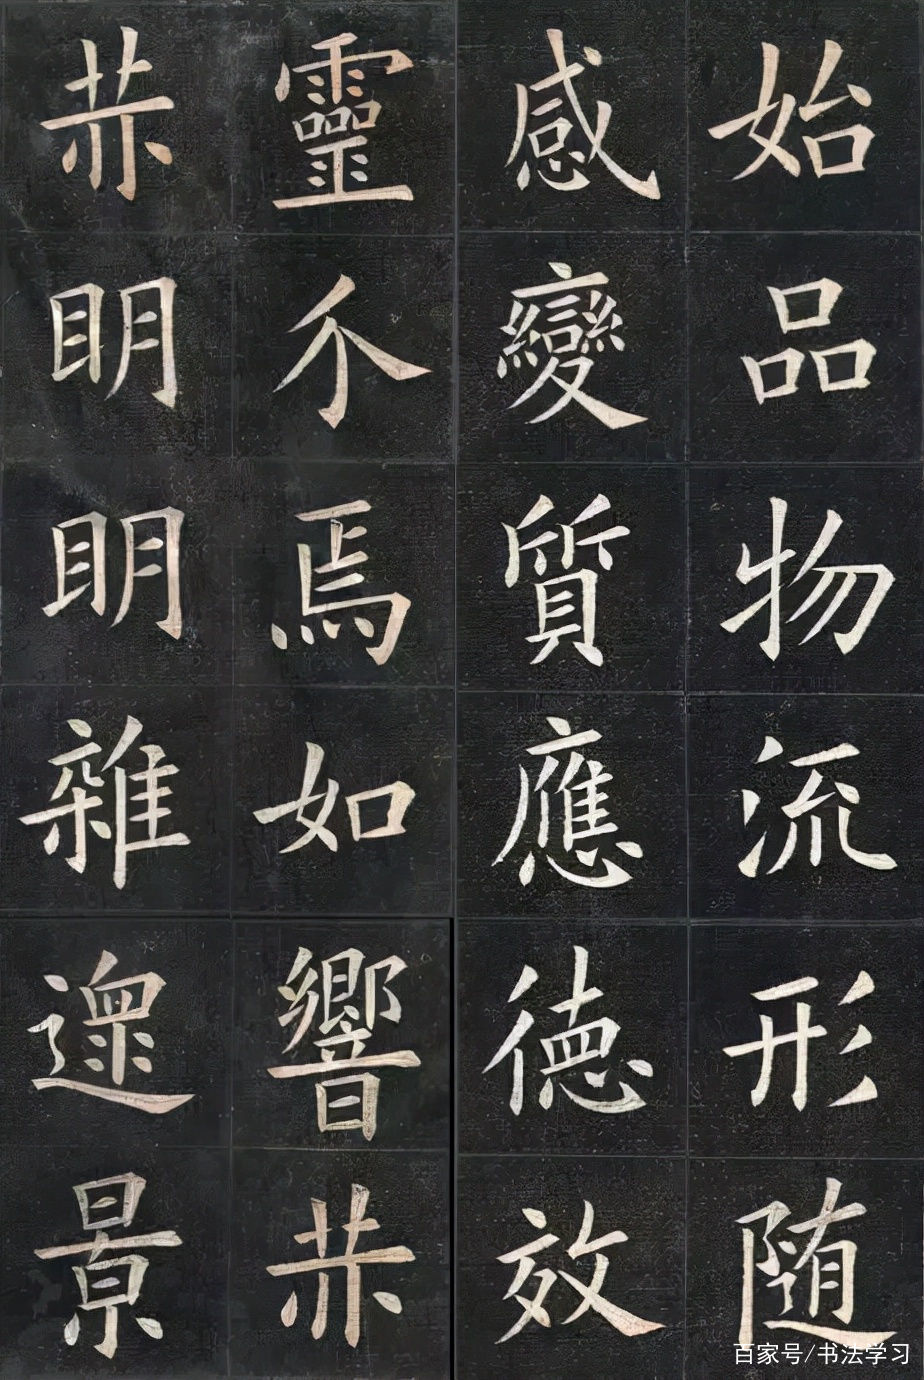 始品物流形随
感變質應德效
靈介焉如響赫
赫眀眀雜遝景
百家号/书法学习